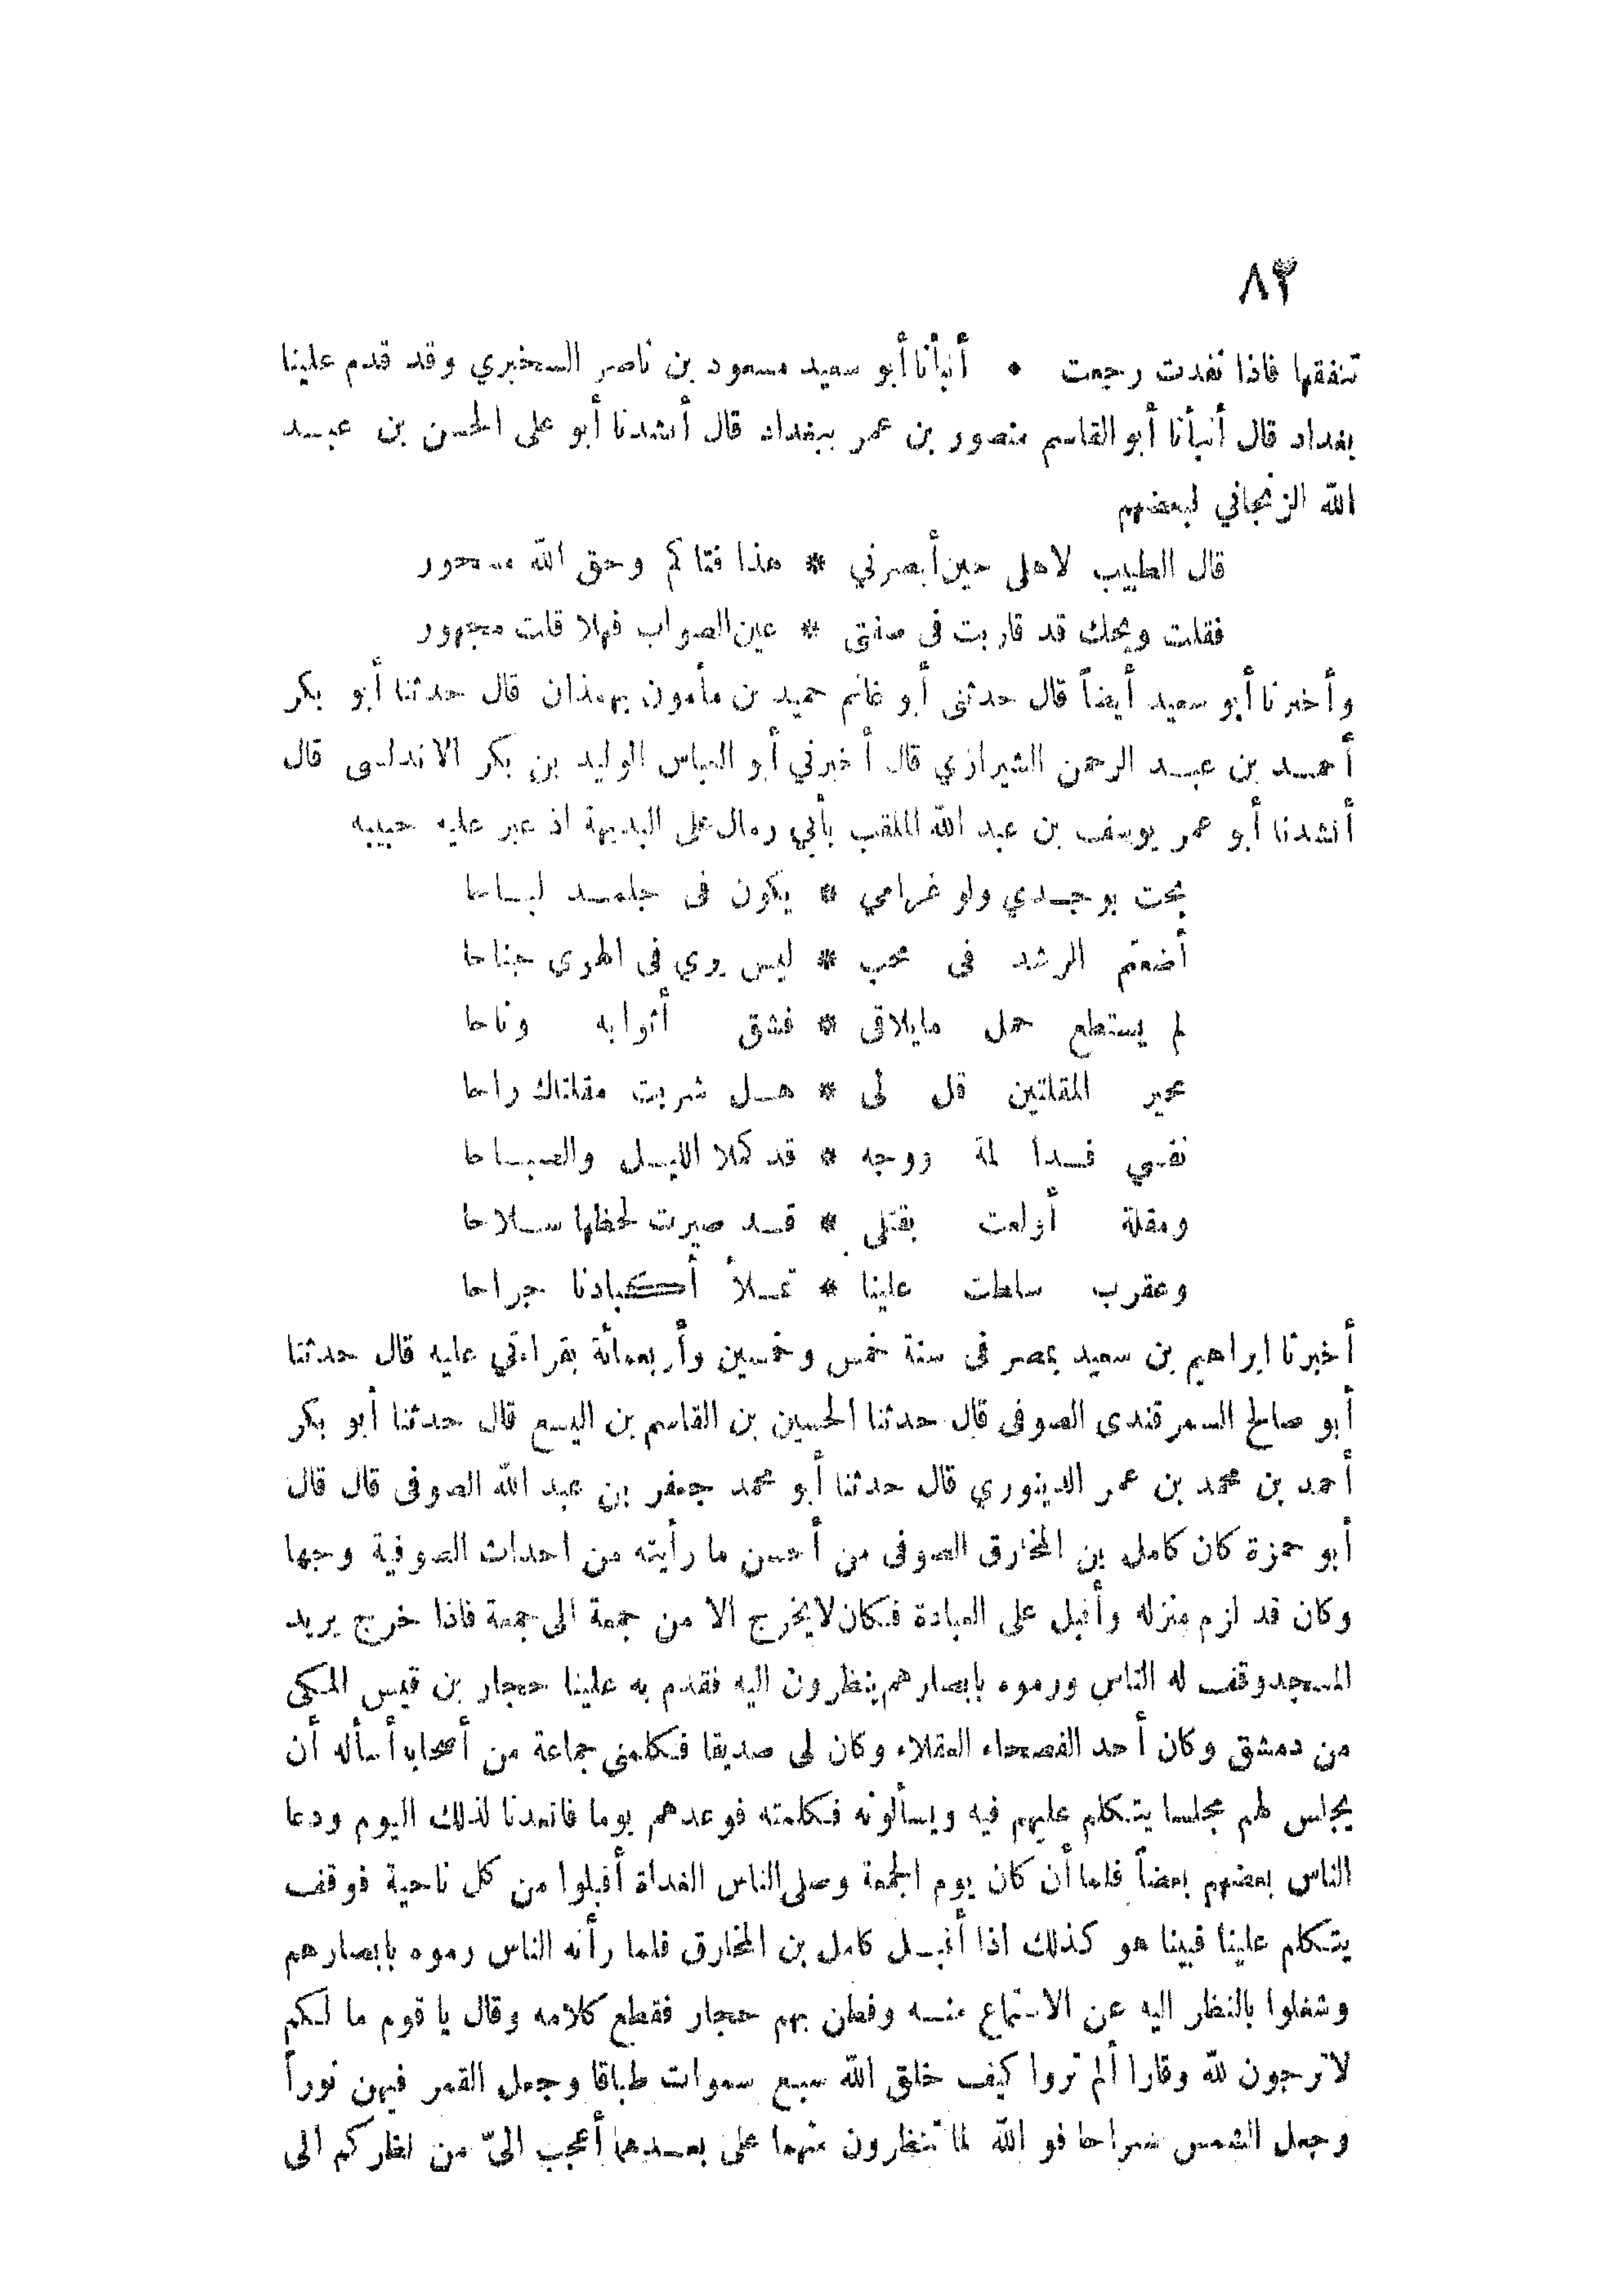 ٨٣
تنفقها فاذا نفدت رجعت • أنبأنا أبو سعيد مسعود بن ناصر السخبري وقد قدم علينا
بغداد قال أنبأنا أبو القاسم منصور بن عمر ببغداد قال أنشدنا أبو على الحسن بن عبد
الله الزنجاني لبعضهم
قال الطبيب لاهلى حين أبصرني * هذا فتاكم وحق الله مسحور
فقلت ويحك قد قاربت فى صفتى * عين الصواب فهلا قلت مجهور
وأخبرنا أبو سعيد أيضاً قال حدثنى أبو غانم حميد بن مأمون بهمذان قال حدثنا أبو بكر
أحمد بن عبد الرحمن الشيرازي قال أخبرني أبو العباس الوليد بن بكر الاندلسى قال
أنشدنا أبو عمر يوسف بن عبد الله الملقب بأبي رمال على البديهة اذ عبر عليه حبيبه
بحت بوجدي ولو غرامي * يكون فى جلمد لباحا
أضعتم الرشد فى محب * ليس يري فى الهوى جناحا
لم يستطع حمل مايلاقى * فشق أثوابه وناحا
محير المقلتين قل لى * هل شربت مقلتاك راحا
نفسي فدا لمة ووجه * قد كملا الليل والصباحا
ومقلة أولعت بقتلى * قد صيرت لحظها سلاحا
وعقرب سلطت علينا * تملأ أكبادنا جراحا
أخبرنا ابراهيم بن سعيد بمصر فى سنة خمس وخمسين وأربعمائة بقراءتي عليه قال حدثنا
أبو صالح السمرقندى الصوفى قال حدثنا الحسين بن القاسم بن اليسع قال حدثنا أبو بكر
أحمد بن محمد بن عمر الدينوري قال حدثنا أبو محمد جعفر بن عبد الله الصوفى قال قال
أبو حمزة كان كامل بن المخارق الصوفى من أحسن ما رأيته من احداث الصوفية وجها
وكان قد لزم منزله وأقبل على العبادة فكان لايخرج الا من جمعة الى جمعة فاذا خرج يريد
المسجد وقف له الناس ورموه بابصارهم ينظرون اليه فقدم به علينا حجار بن قيس المكى
من دمشق وكان أحد الفصحاء العقلاء وكان لى صديقا فكلمنى جماعة من أصحابه أسأله أن
يجلس لهم مجلسا يتكلم عليهم فيه ويسألونه فكلمته فوعدهم يوما فاتعدنا لذلك اليوم ودعا
الناس بعضهم بعضاً فلما أن كان يوم الجمعة وصلى الناس الغداة أقبلوا من كل ناحية فوقف
يتكلم علينا فبينا هو كذلك اذا أقبل كامل بن المخارق فلما رأته الناس رموه بابصارهم
وشغلوا بالنظر اليه عن الاستماع منه وفطن بهم حجار فقطع كلامه وقال يا قوم ما لكم
لا ترجون لله وقارا ألم تروا كيف خلق الله سبع سموات طباقا وجعل القمر فيهن نوراً
وجعل الشمس سراجا فو الله لما تنظرون منهما على بعدهما أعجب الىّ من نظركم الى